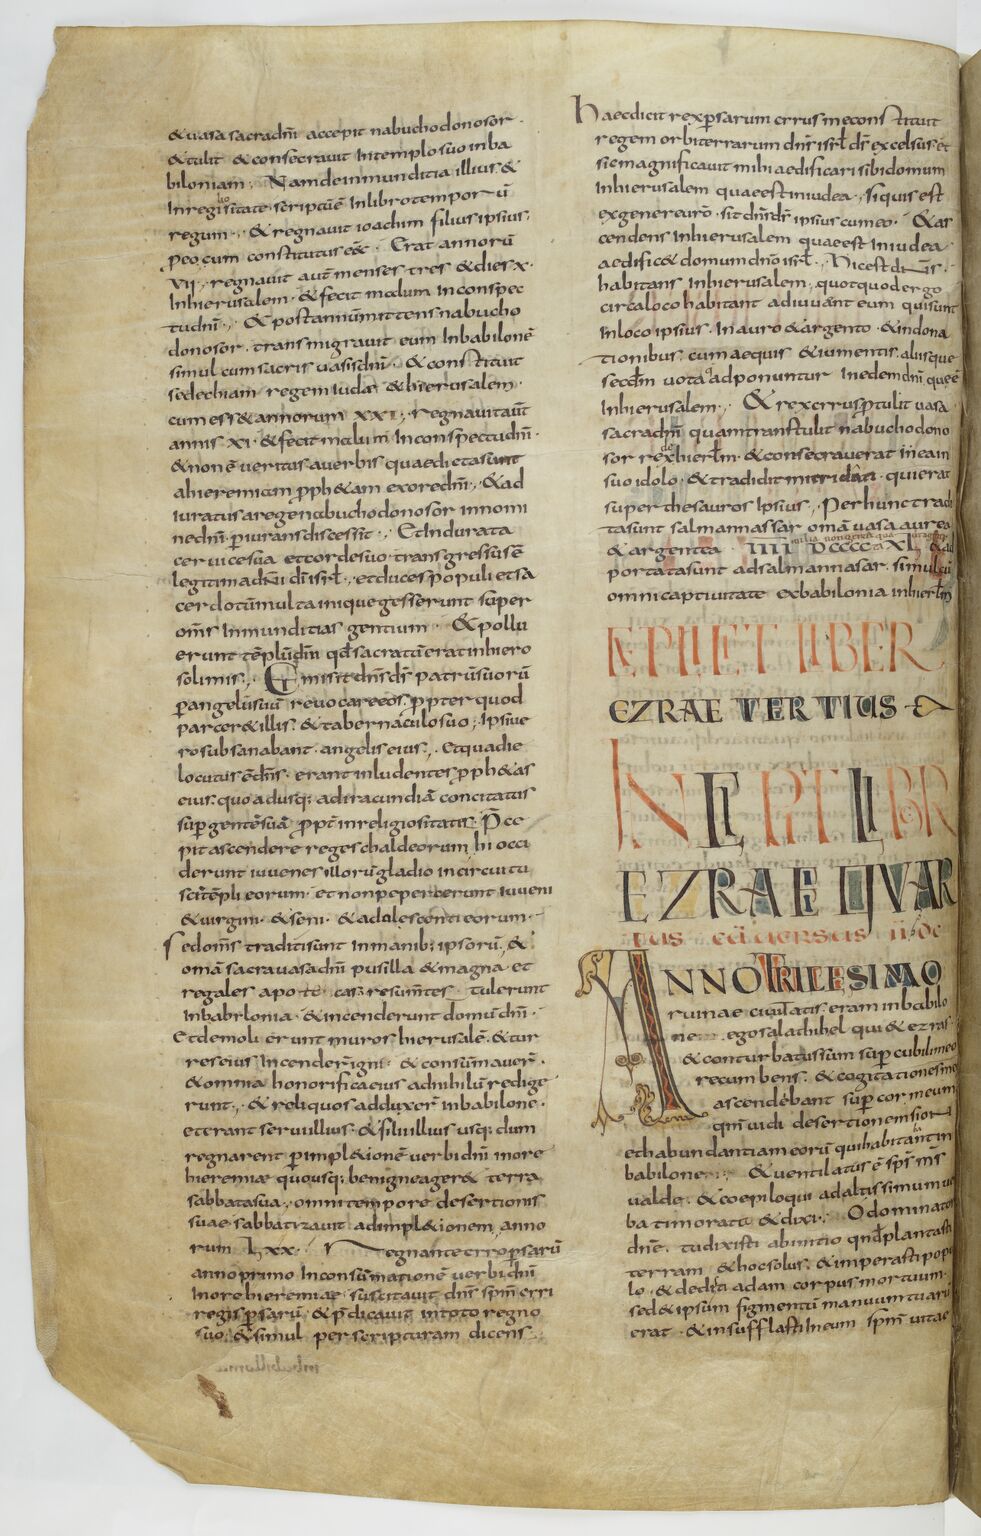 & uasa sacra dnī accepit nabuchodonosor
& tulit & consecrauit In templo suo in ba
biloniam; Nam de inmunditia illius &
Inregi lio sitate scriptū ē In libro temporū
regum; & regnauit ioachim filius ipsius
p eo cum constitutus e & Erat annorū
VII; regnauit aut menses tres & dies X
Inhierusalem & fecit malum In conspec
tu dnī; & post annū mittens nabucho
donosor transmigrauit eum In babilonē
simul cum sacris uasis dnī & constituit
sedechiam regem Iuda & hierusalem
cum ess& annorum XXI; regnauit aūt
annis XI & fecit malum In conspectu dnī
& non ē ueritus a uerbis quae dicta sunt
ab ieremia proph&am ex ore dnī; & ad
iuratus a rege nabuchodonosor in nomi
ne dnī p iurans discessit; Et Indurata
ceruice sua et corde suo transgressus ē
legitima dnī dī isrl; et duces populi et sa
cerdotū multa inique gesserunt super
oms Inmunditias gentium & pollu
erunt tēplū dnī qd sacratū erat in hiero
solimis; Et misit dns ds patrū suorū
p angelū suū reuocare eos ppter quod
parcer& illis & tabernaculo suo; Ipsi ue
ro subsanabant angelis eius; Et qua die
locutus ē dns erant inludentes proph&as
eius quo adusq; ad iracundiā concitatus
sup gentē suā propt inreligiositatē Pce
pit ascendere reges chaldeorum hi occi
derunt iuuenes illorū gladio in circuitu
sci tēpli eorum et non pepercerunt iuueni
& uirgini & seni & adolescenti eorum
Sed oms traditi sunt in manib; ipsorū &
omā sacra uasa dnī pusilla & magna et
regales apo te cas resumtes tulerunt
Inbabilonia & incenderunt domū dnī
Et demolierunt muros hierusalē & tur
res eius Incender igni & consūmauer
& omnia honorifica eius ad nihilū redige
runt; & reliquos adduxer in babilone
et erant serui illius & filii illius usq; dum
regnarent p impl&ionē uerbi dnī in ore
hieremiae quousq; benigne ager& terra
sabbata sua; omni tempore desertionis
suae sabbatizauit ad impl&ionem anno
rum LXX Regnante cyro psarū
anno primo In consūmationē uerbi dnī
In ore hieremiae suscitauit dns spm cyrri
regis psarū & pdicauit in toto regno
suo & simul per scripturam dicens
Haec dicit rex psarum cyrrus me constituit
regem orbi terrarum dns isrl ds excelsus et
significauit mihi aedificari sibi domum
Inhierusalem quae est in iudea si quis est
ex genere uro sit dns ds ipsius cum eo & as
cendens In hierusalem quae est In iudea
aedific& domum dno isrl; Hic est dns
habitans Inhierusalem; quotquod ergo
circa loco habitant adiuuant eum qui sunt
In loco ipsius In auro & argento & in dona
tionibus cum aequis & iumentis aliisque
secdm uota adponuntur In edem dnī quae ē
Inhierusalem; & rex cyrrus ptulit uasa
sacra dnī quam transtulit nabuchodono
sor rex de hierlm & consecrauerat in eam
suo idolo & tradidit mitridati qui erat
super thesauros Ipsius; Per hunc tradi
ta sunt salmannassar omā uasa aurea
& argentea IIII DCCCC XL &ad
portata sunt ad salmannasar simul cū
omni captiuitate ex babilonia in hierlm
EXPLICIT LIBER
EZRAE TERTIUS
INCIPIT LIBER
EZRAE QUAR
TUS
ANNO TRICESIMO
ruinae ciuitatis eram in babilo
ne ego salathihel qui & ezras
& conturbatus sum sup cubili meo
recumbens & cogitationes meę
ascendebant sup cor meum
qm uidi desertionem sion
et habundantiam eorū qui habitant in
babilone; & uentilatus ē sps ms
ualde & coepi loqui ad altissimum uer
ba timorata & dixi; O dominator
dne tu dixisti ab initio qndo plantasti
terram & hoc solus & imperasti popu
lo & dedisti adam corpus mortuum
sed & ipsum figmentū manuum tuarū
erat & insufflasti In eum spm uitae